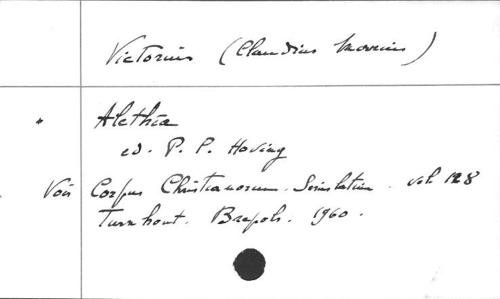 Victorius (Claudius Marius)
" Alethia
ed. P. P. Hoving
Voir Corpus Christianorum. Series latina. vol. 128
Turnhout. Brepols. 1960.